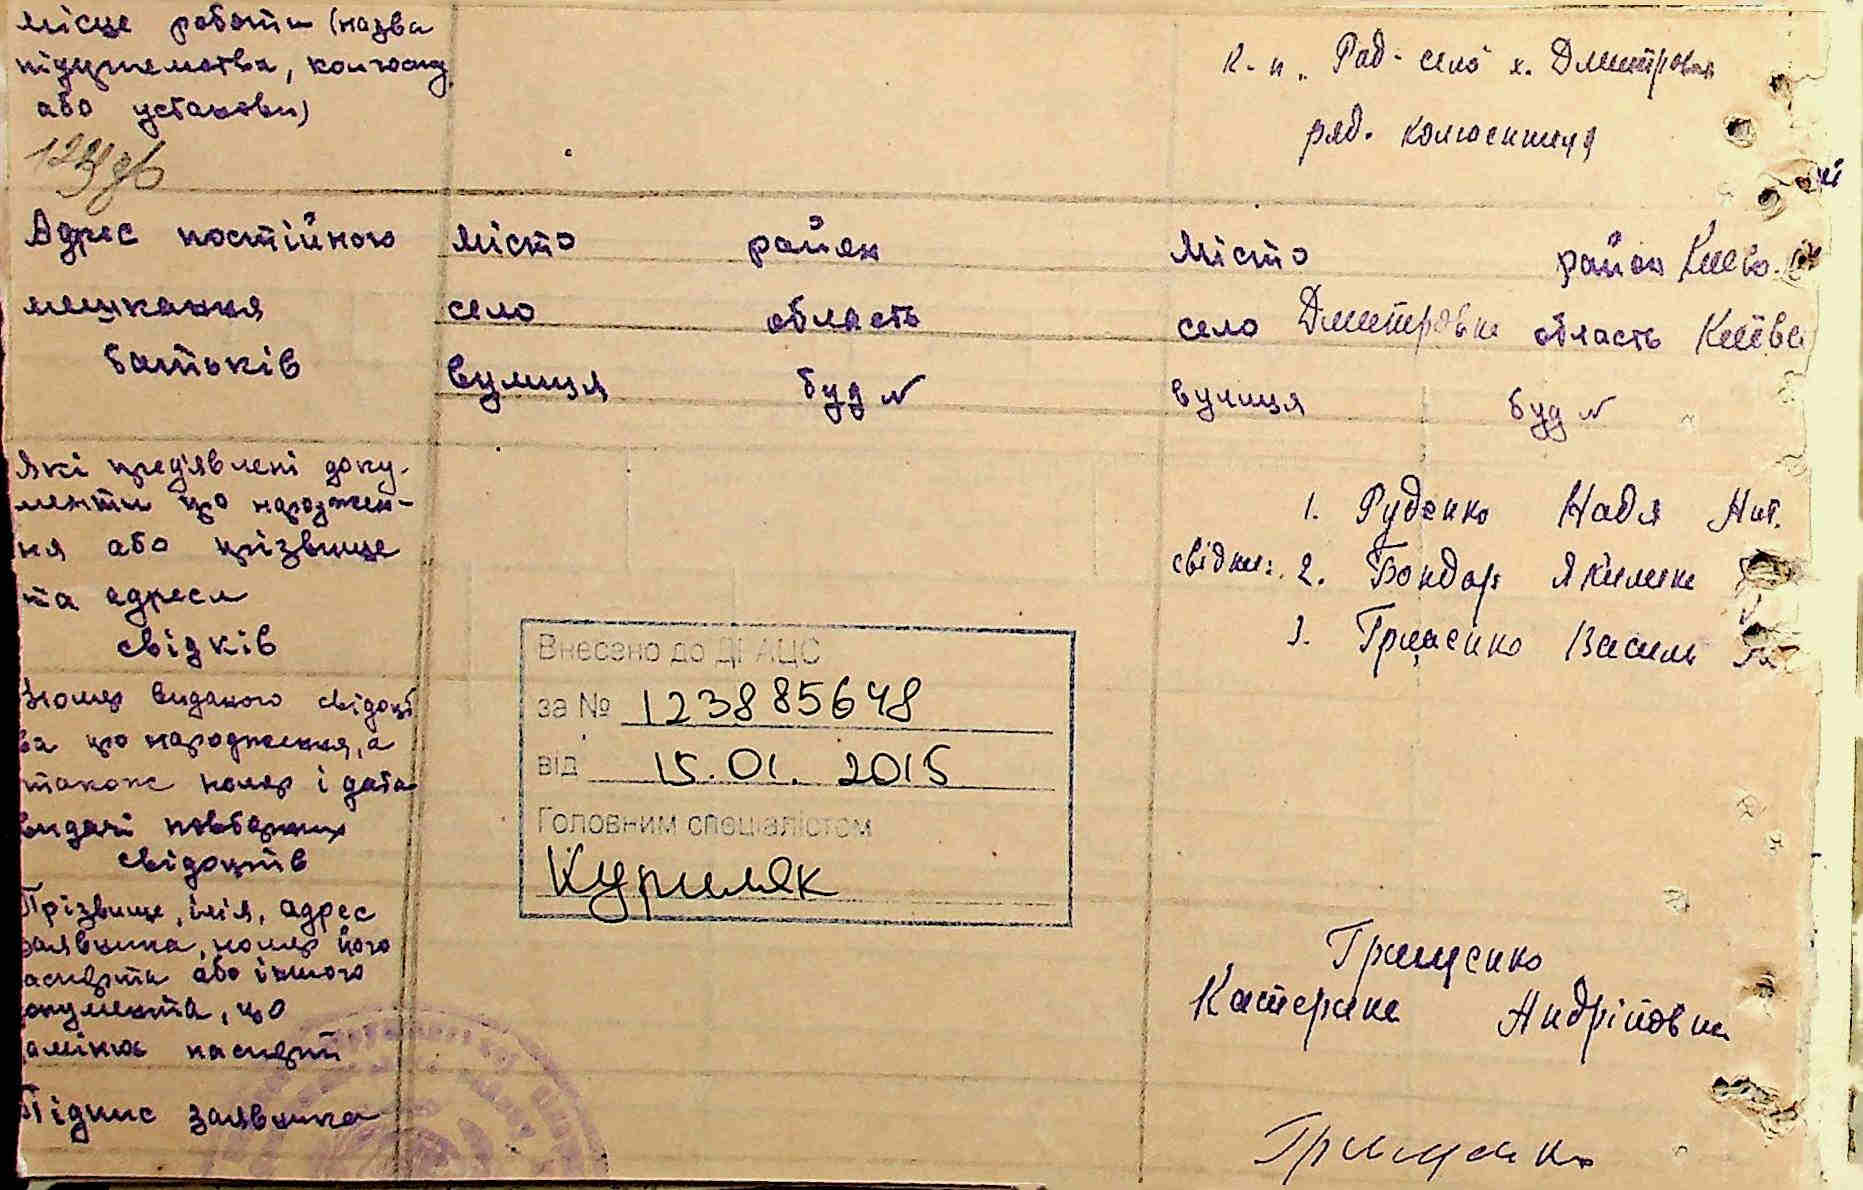 місце роботи (назва
підприємства, колгоспу
або установи)
к-п "Рад-село" х. Дмитровка
ряд. колгоспниця
Адрес постійного
мешкання
батьків
місто район
село область
вулиця буд №
Місто район Києво.
село Дмитровка область Київс
вулиця буд №
Які пред'явлені доку-
менти про народжен-
ня або прізвище
та адреси
свідків
1. Руденко Надя
свідки: 2. Бондар Якилина
3. Грищенко Василь
Внесено до ДРАЦС
за № 123885648
від 15.01.2015
Головним спеціалістом
Куриляк
Номер виданого свідоц
ва про народження, а
також номер і дата
видачі повторних
свідоцтв
Прізвище, ім'я, адрес
заявника, номер його
паспорта або іншого
документа, що
заміняє паспорт
Грищенко
Катерина Андріївна
Підпис заявника
Грищенко